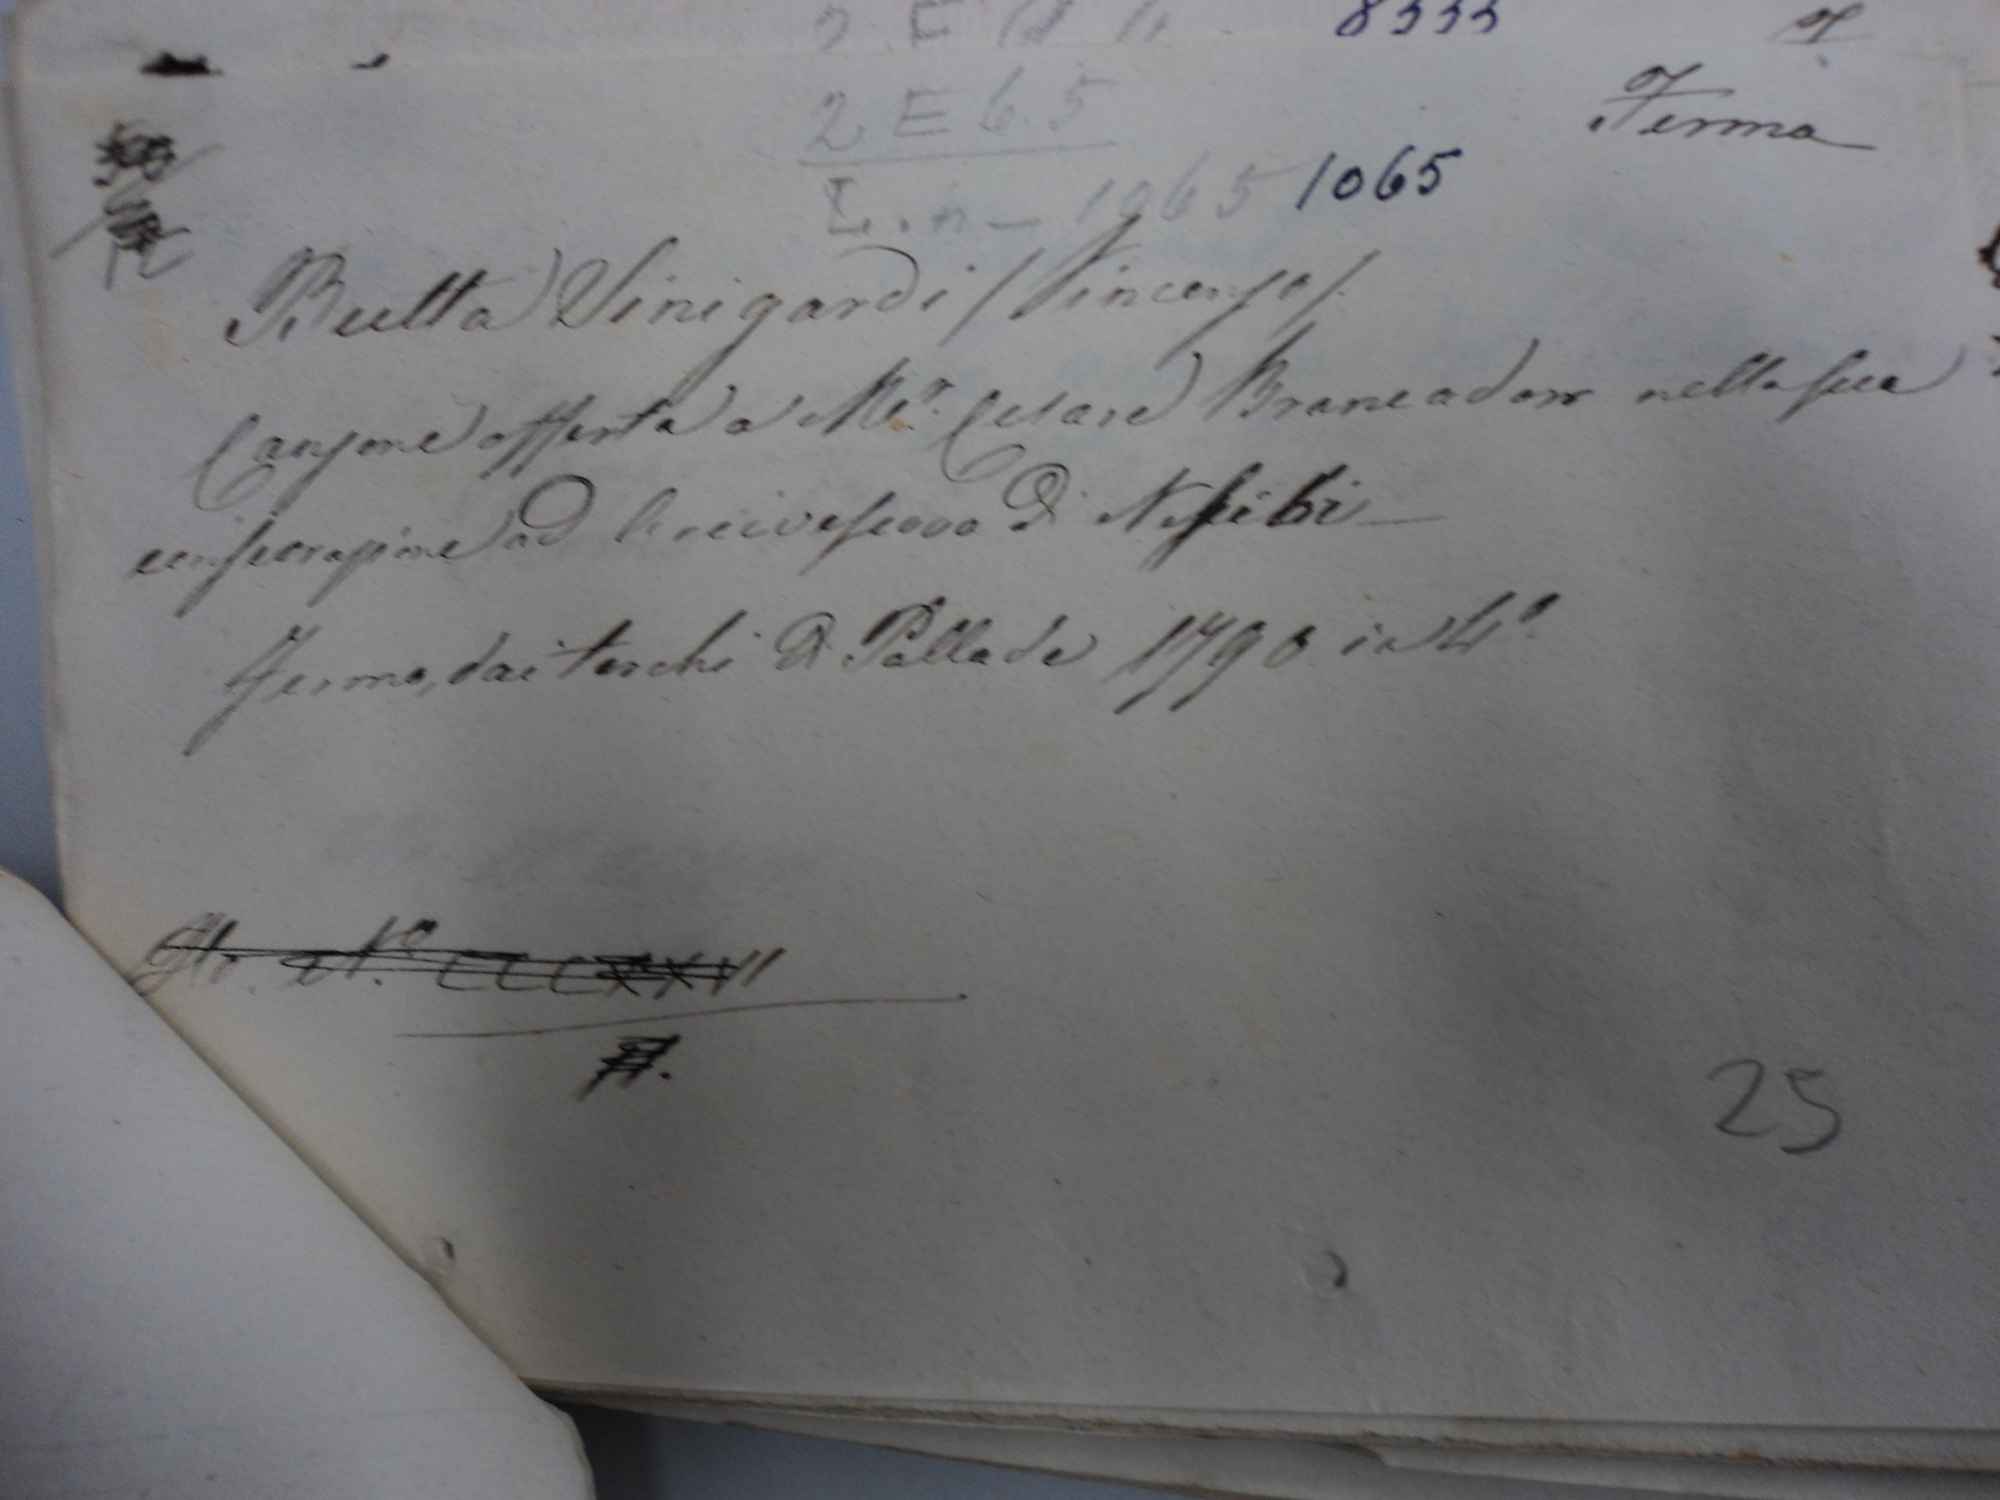 8333
Fermo
2 E 6.5
L. n - 1065 1065
Buelta Sinigardi (Vincenzo)
Canzone offerta a Mr. Cesare Brancadoro nella sua
consecrazione ad Arcivescovo di Nisibi
Fermo, dai torchi di Pallade 1790 in 4º
25